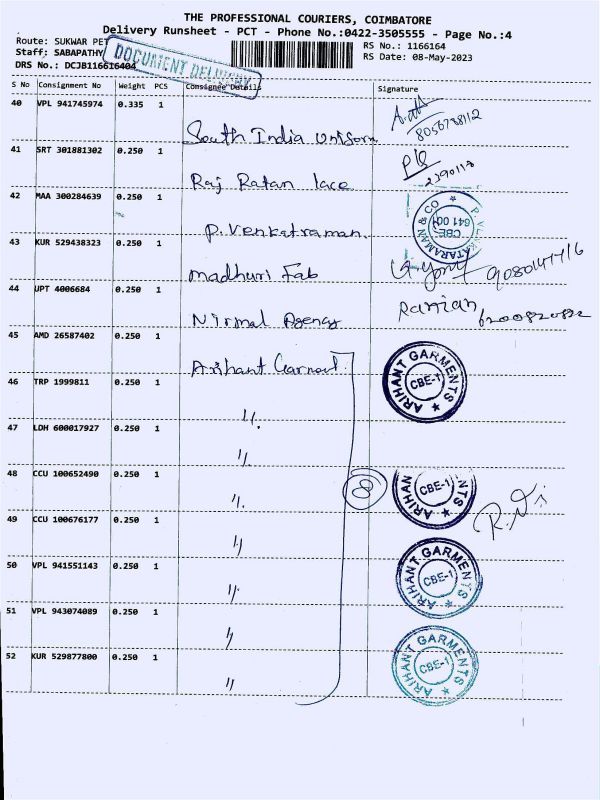 THE PROFESSIONAL COURIERS, COIMBATORE
Delivery Runsheet - PCT - Phone No.:0422-3505555 - Page No.:4
Route: SUKWAR PET
RS No.: 1166164
Staff: SABAPATHY
RS Date: 08-May-2023
DRS No.: DCJB116616404
DOCUMENT DELIVERY
S No Consignment No Weight PCS Consignee Details Signature
40 VPL 941745974 0.335 1
South India Uniform
8056788112
41 SRT 301881302 0.250 1
Raj Ratan lace
2390113
42 MAA 300284639 0.250 1
P. Venkatraman.
P. VENKATARAMAN & CO
CBE
641 001
43 KUR 529438323 0.250 1
Madhuri Fab
9080147716
44 UPT 4006684 0.250 1
Nirmal Agency
6200820822
45 AMD 26587402 0.250 1
Arihant Garment
ARIHANT GARMENTS
CBE-1
46 TRP 1999811 0.250 1
11.
47 LDH 600017927 0.250 1
11.
48 CCU 100652490 0.250 1
11.
8
ARIHANT GARMENTS
CBE-1
49 CCU 100676177 0.250 1
11
50 VPL 941551143 0.250 1
11.
ARIHANT GARMENTS
CBE-1
51 VPL 943074089 0.250 1
11
52 KUR 529877800 0.250 1
11
ARIHANT GARMENTS
CBE-1